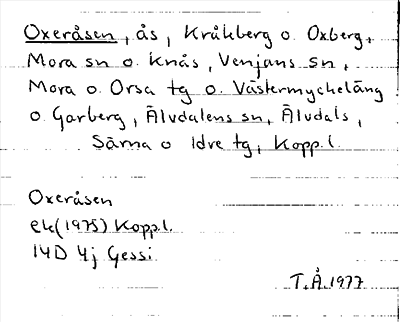 Oxeråsen, ås, Kråkberg o. Oxberg,
Mora sn o. Knås, Venjans sn,
Mora o. Orsa tg o. Västermyckeläng
o. Garberg, Älvdalens sn, Älvdals,
Särna o Idre tg, Kopp.l.
Oxeråsen
ek(1975) Koppl.
14D 4j Gessi
T.Å.1977